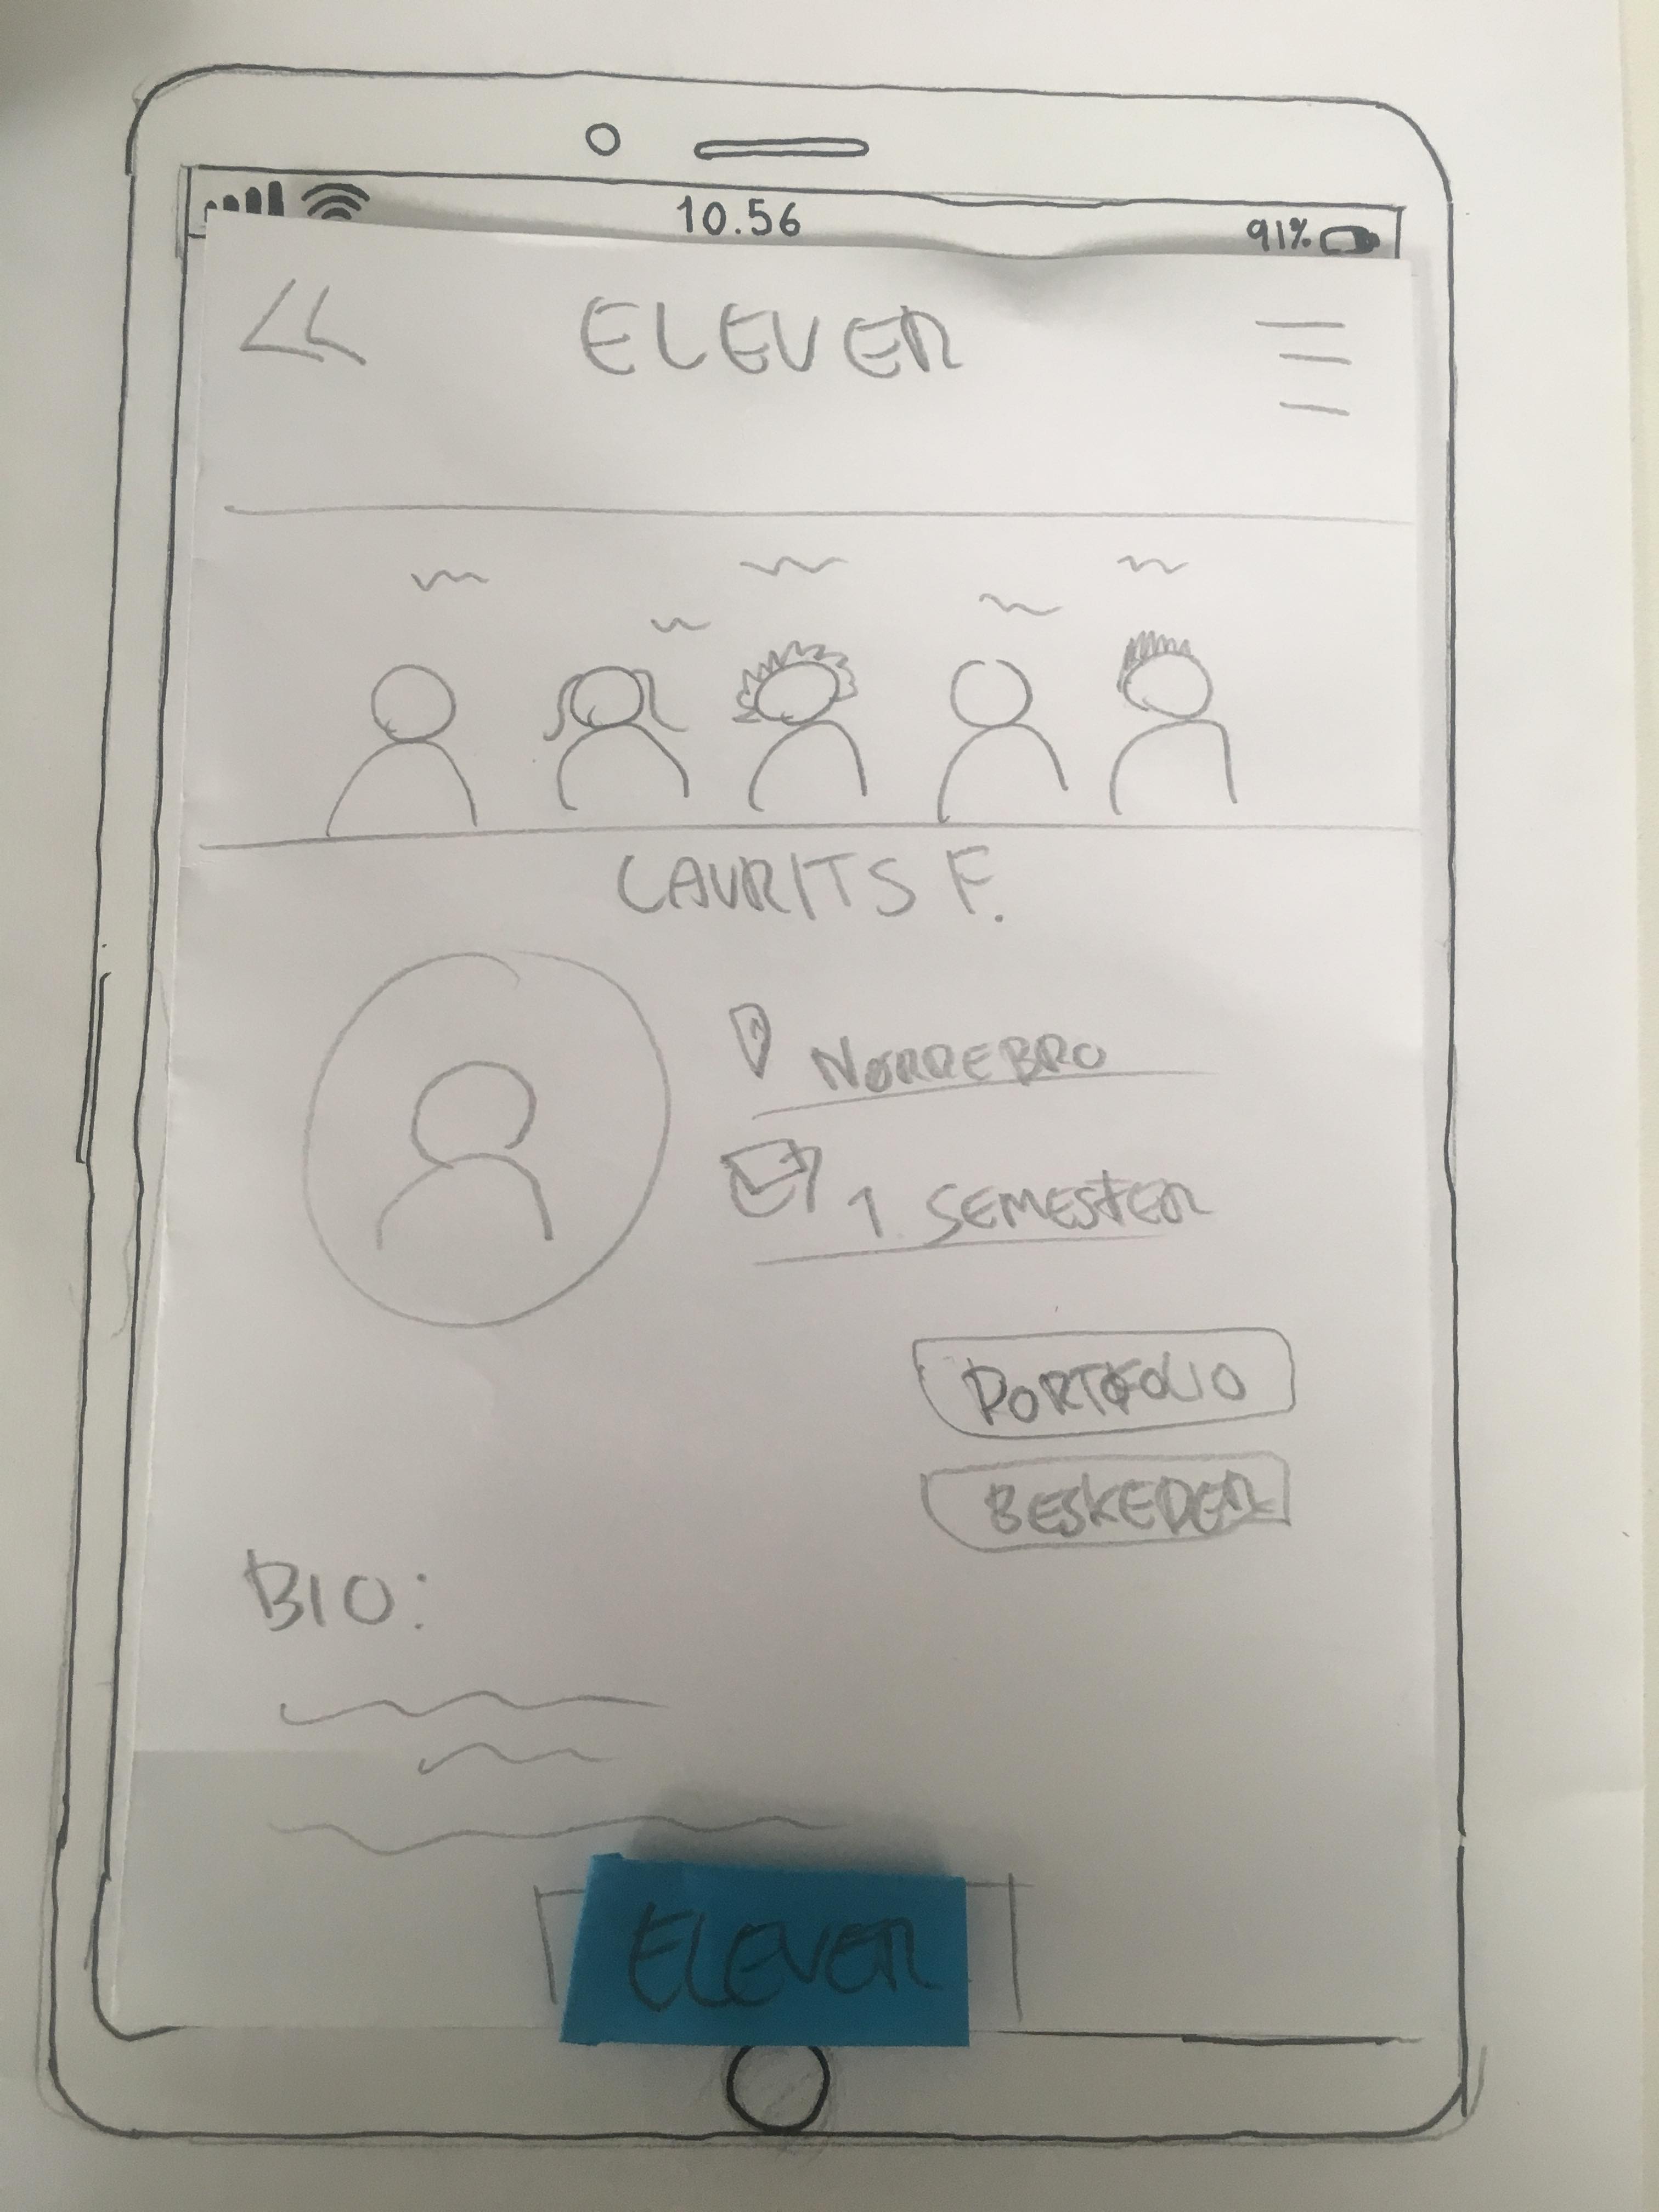 10.56
91%
ELEVER
LAURITS F.
NØRREBRO
1. SEMESTER
PORTFOLIO
BESKEDER
BIO:
ELEVER